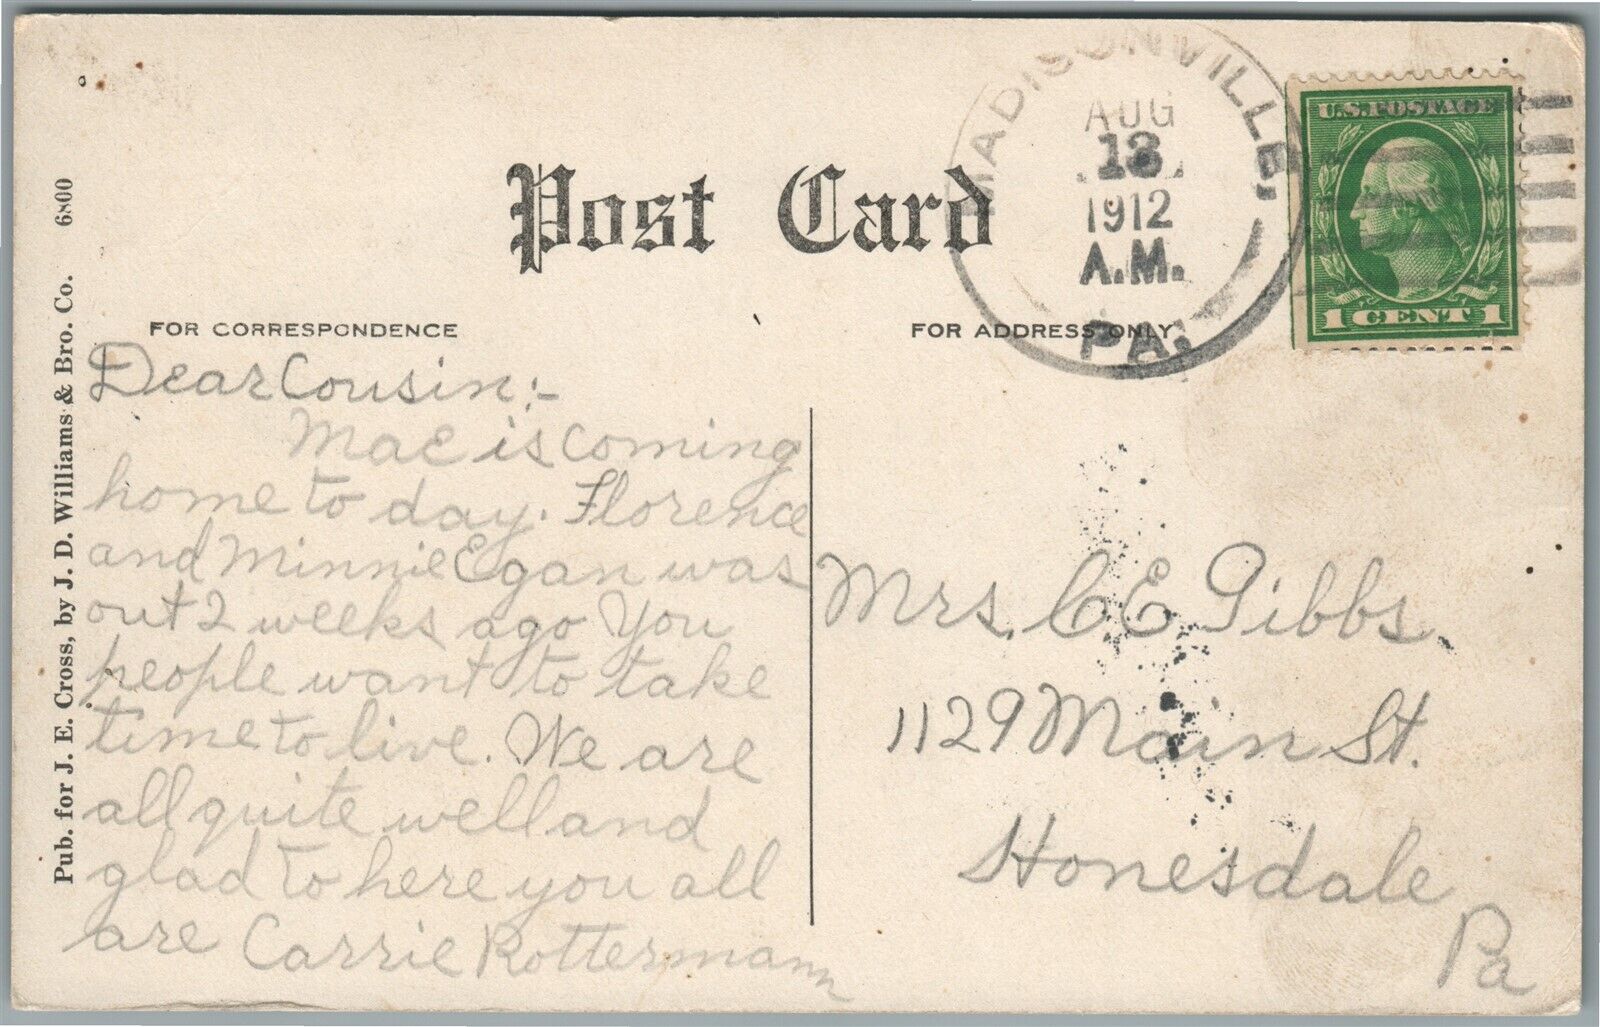 Post Card
MADISONVILLE,
AUG
13
1912
A.M.
PA.
U.S. POSTAGE
1 CENT 1
FOR CORRESPONDENCE
FOR ADDRESS ONLY
Dear Cousin:-
Mae is coming
home to day. Florence
and Minnie Egan was
out 2 weeks ago You
people want to take
time to live. We are
all quite well and
glad to here you all
are Carrie Rottermann
Mrs. C E Gibbs
1129 Main St.
Honesdale
Pa
Pub. for J. E. Cross, by J. D. Williams & Bro. Co. 6800